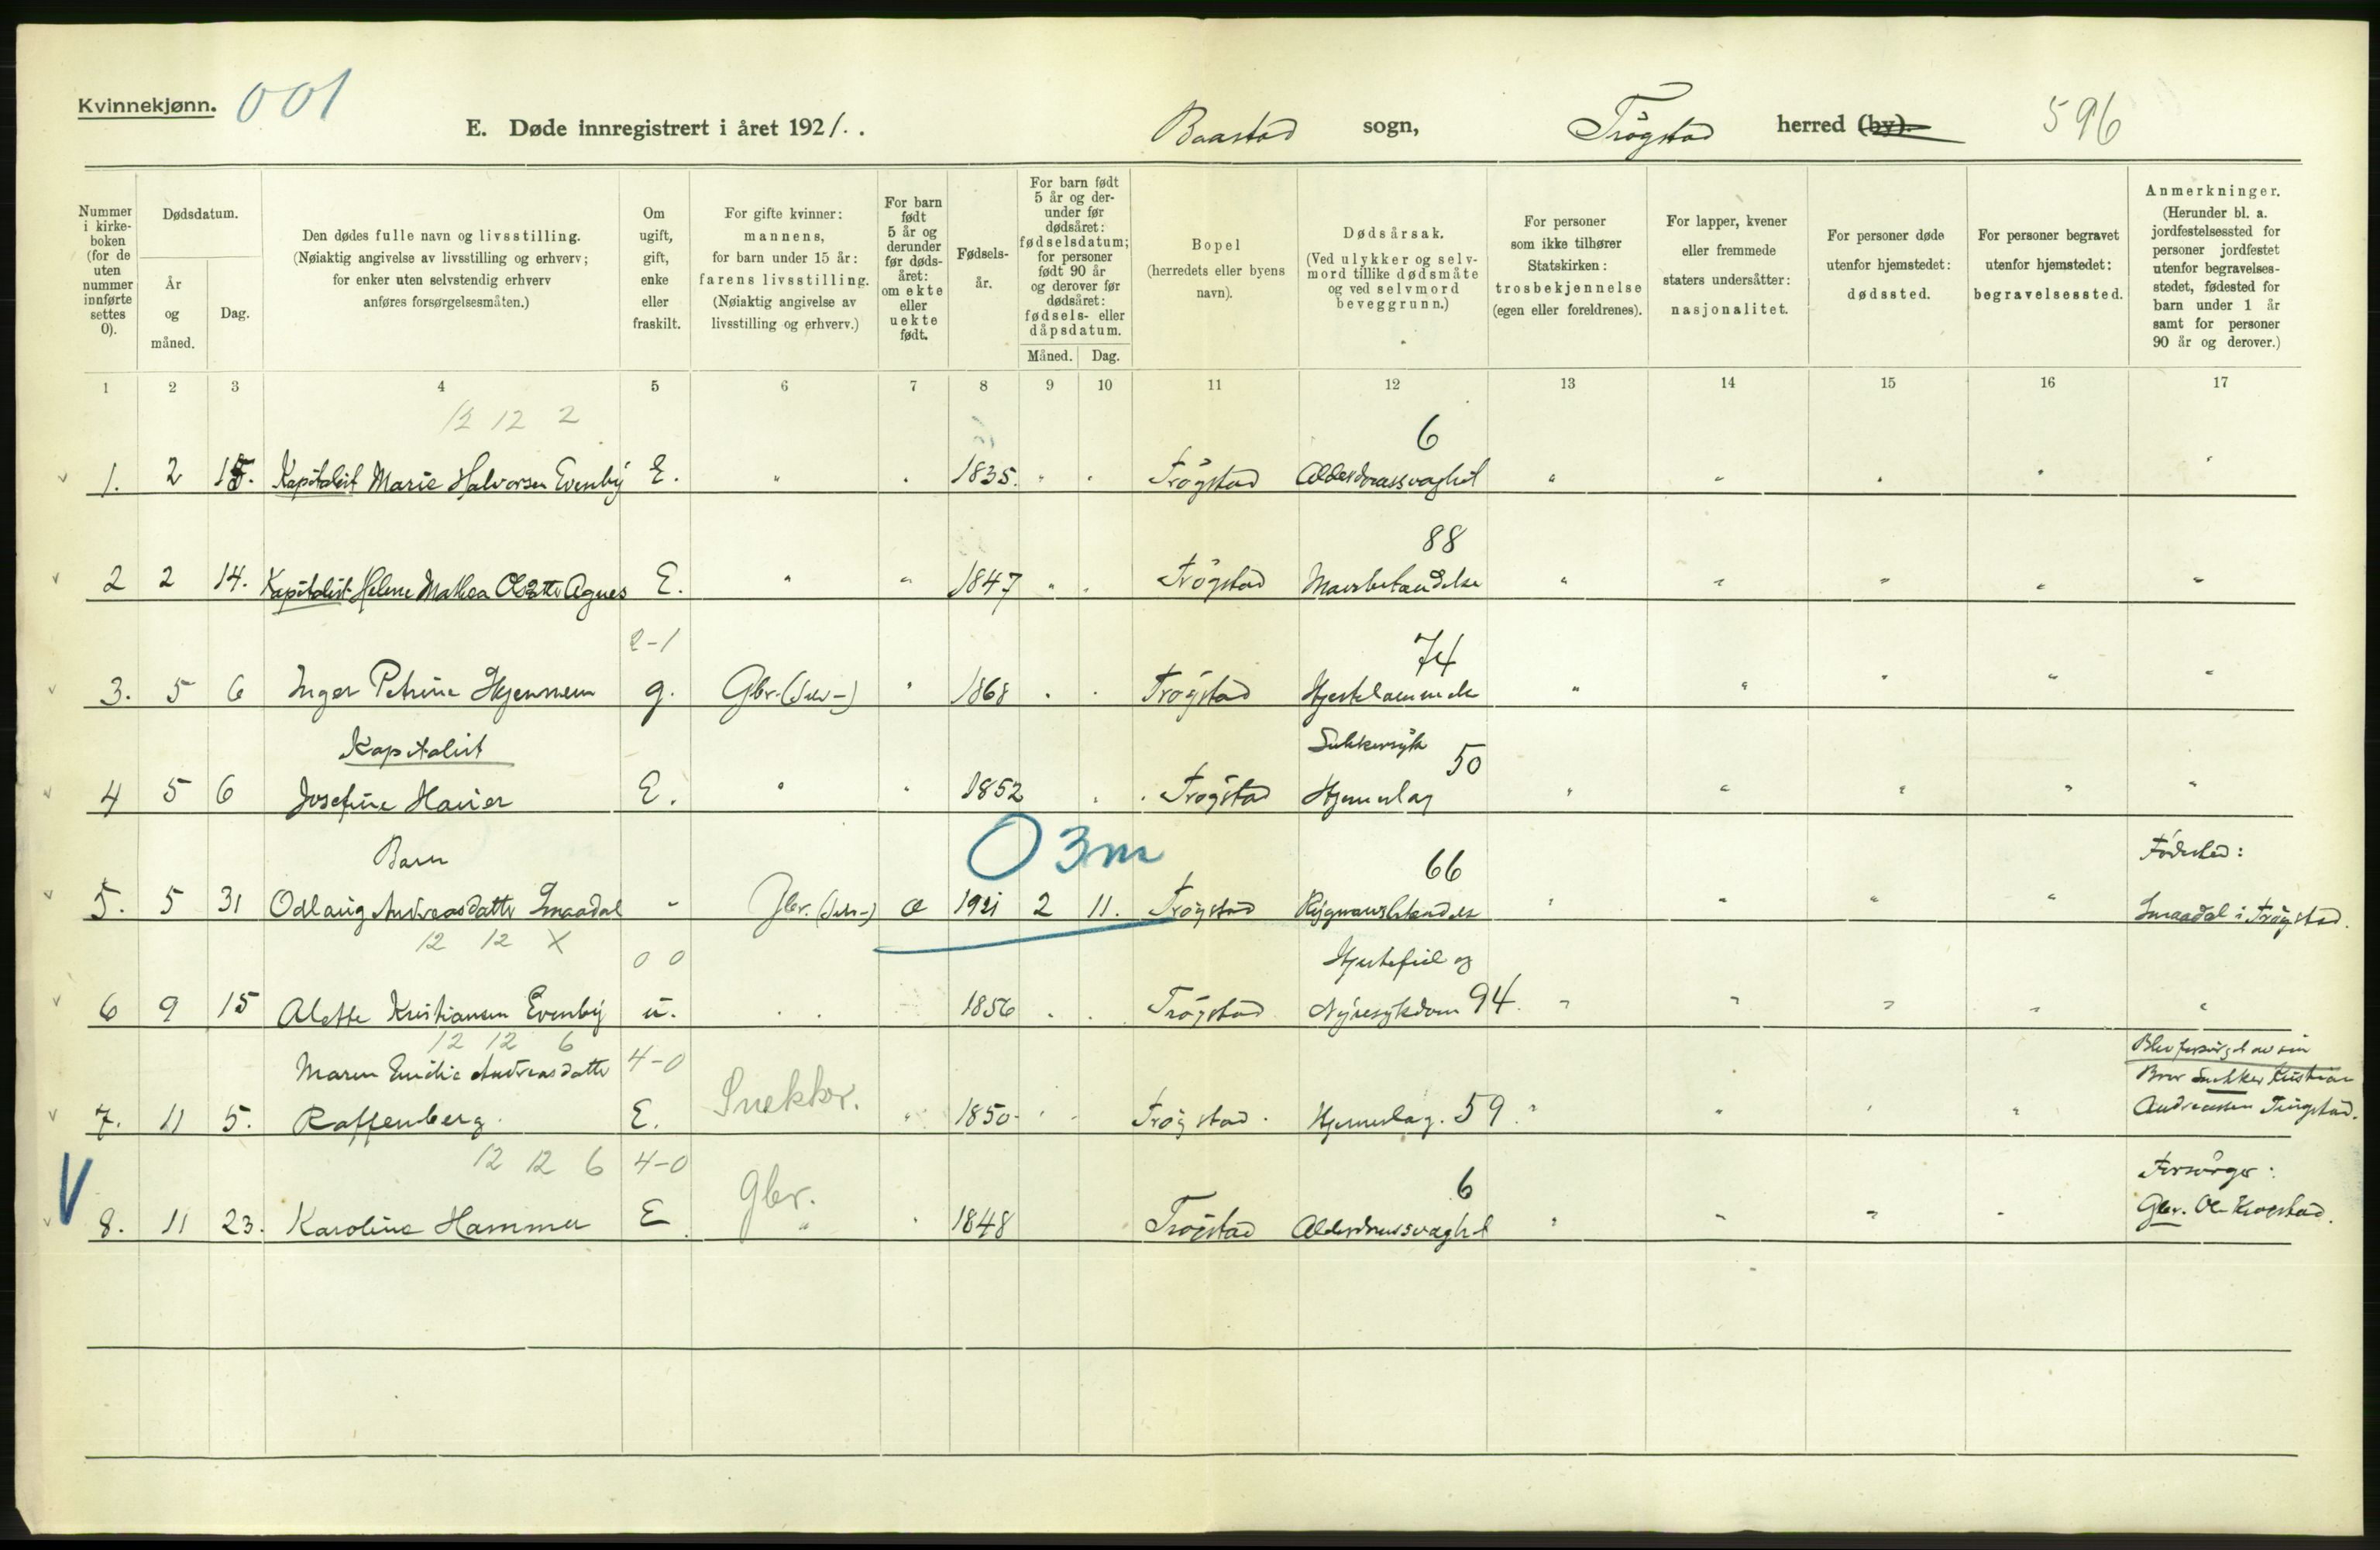 Kvinnekjønn. 001
E. Døde innregistrert i året 1921. Baastad sogn, Trøgstad herred (by). 596
Nummer i kirke-boken (for de uten nummer innførte settes 0).
Dødsdatum.
År og måned.
Dag.
Den dødes fulle navn og livsstilling. (Nøiaktig angivelse av livsstilling og erhverv; for enker uten selvstendig erhverv anføres forsørgelsesmåten.)
Om ugift, gift, enke eller fraskilt.
For gifte kvinner: mannens, for barn under 15 år: farens livsstilling. (Nøiaktig angivelse av livsstilling og erhverv.)
For barn født 5 år og derunder før døds-året: om ekte eller uekte født.
Fødsels-år.
For barn født 5 år og der-under før dødsåret: fødselsdatum; for personer født 90 år og derover før dødsåret: fødsels- eller dåpsdatum.
Måned. Dag.
Bopel (herredets eller byens navn).
Dødsårsak. (Ved ulykker og selv-mord tillike dødsmåte og ved selvmord beveggrunn.)
For personer som ikke tilhører Statskirken: trosbekjennelse (egen eller foreldrenes).
For lapper, kvener eller fremmede staters undersåtter: nasjonalitet.
For personer døde utenfor hjemstedet: dødssted.
For personer begravet utenfor hjemstedet: begravelsessted.
Anmerkninger. (Herunder bl. a. jordfestelsessted for personer jordfestet utenfor begravelses-stedet, fødested for barn under 1 år samt for personer 90 år og derover.)
1 2 3 4 5 6 7 8 9 10 11 12 13 14 15 16 17
12 12 2 6
1. 2 15. Kapitalist Marie Halvorsen Evenby E. " 1835. " Trøgstad Alderdomssvaghet " "
88
2 2 14. Kapitalist Helene Mathea Olsdtr Agnes E. " " 1847 " Trøgstad Mavebetændelse " " " " "
2-1 74
3. 5 6 Inger Petrine Hjemmen g. Gbr. (Selv-) " 1868 Trøgstad Hjertelammelse " " " " "
Kapitalist Sukkersyke 50
4 5 6 Josefine Havier E. " " 1852 Trøgstad Hjerneslag " " " " "
Barn 0 3m 66 Fødested:
5. 5 31 Odlaug Andreasdatter Smaadal " Gbr. (Selv-) e 1921 2 11. Trøgstad Rygmarvsbetændelse " " " " Smaadal i Trøgstad.
12 12 X 0 0 Hjertefeil og
6 9 15 Alette Kristiansen Evenby u. 1856 Trøgstad Nyresykdom 94. " " " " "
12 12 6 Blev forsørget av sin
Maren Emilie Andreasdatter 4-0 Bror Snekker Kristian
7. 11 5. Raffenberg. E. Snekker. " 1850. Trøgstad. Hjerneslag. 59. " " " " Andreassen Tingstad.
12 12 6 4-0 6 Forsørger:
8. 11 23. Karoline Hammer E. Gbr. " " 1848 Trøgstad Alderdomssvaghet " " " Gbr. Ole Krogstad.